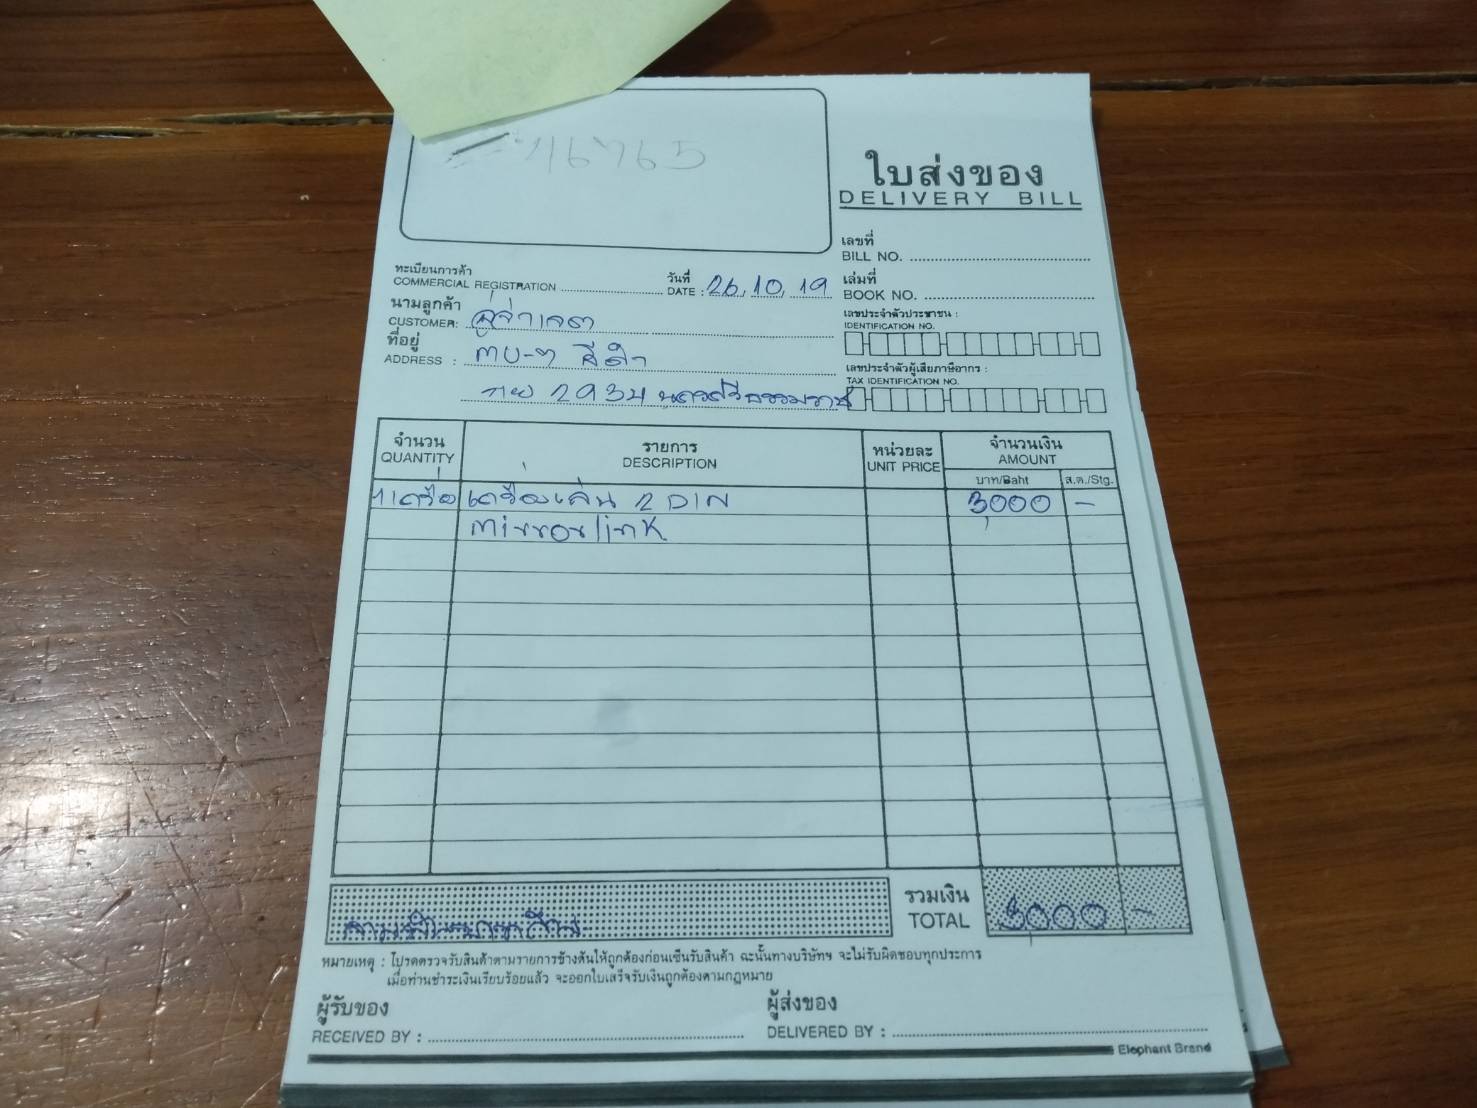 ใบส่งของ
DELIVERY BILL
เลขที่
BILL NO.
ทะเบียนการค้า
COMMERCIAL REGISTRATION
วันที่
DATE : 26, 10, 19
เล่มที่
BOOK NO.
นามลูกค้า
CUSTOMER:
เลขประจำตัวประชาชน :
IDENTIFICATION NO.
ที่อยู่
ADDRESS : สีดำ
เลขประจำตัวผู้เสียภาษีอากร :
TAX IDENTIFICATION NO.
2934 นครศรีธรรมราช
จำนวน รายการ หน่วยละ จำนวนเงิน
QUANTITY DESCRIPTION UNIT PRICE AMOUNT
บาท/Baht ส.ต./Stg.
1 เครื่อง เครื่องเล่น 2 DIN 3,000 -
mirrorlink
รวมเงิน
TOTAL 3,000 -
สามพันบาทถ้วน
หมายเหตุ : โปรดตรวจรับสินค้าตามรายการข้างต้นให้ถูกต้องก่อนเซ็นรับสินค้า ฉะนั้นทางบริษัทฯ จะไม่รับผิดชอบทุกประการ
เมื่อท่านชำระเงินเรียบร้อยแล้ว จะออกใบเสร็จรับเงินถูกต้องตามกฎหมาย
ผู้รับของ ผู้ส่งของ
RECEIVED BY : DELIVERED BY :
Elephant Brand